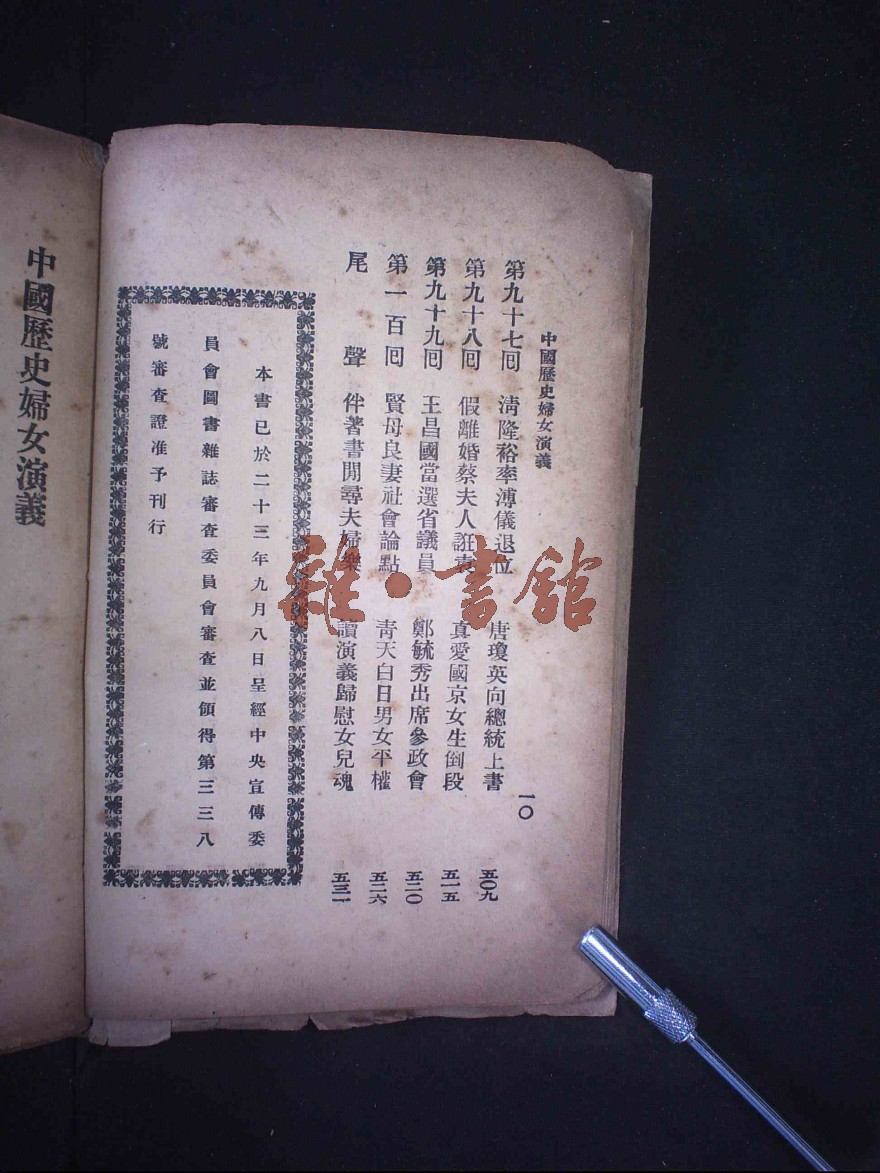 中國歷史婦女演義
一〇
第九十七囘 清隆裕率溥儀退位 唐瓊英向總統上書 五〇九
第九十八囘 假離婚蔡夫人誑袁 真愛國京女生倒段 五一五
第九十九囘 王昌國當選省議員 鄭毓秀出席參政會 五二〇
第一百囘 賢母良妻社會論點 青天白日男女平權 五二六
尾聲 伴著書閒尋夫婦樂 讀演義歸慰女兒魂 五三一
本書已於二十三年九月八日呈經中央宣傳委
員會圖書雜誌審查委員會審查並領得第三三八
號審查證准予刊行
中國歷史婦女演義
雜·書館